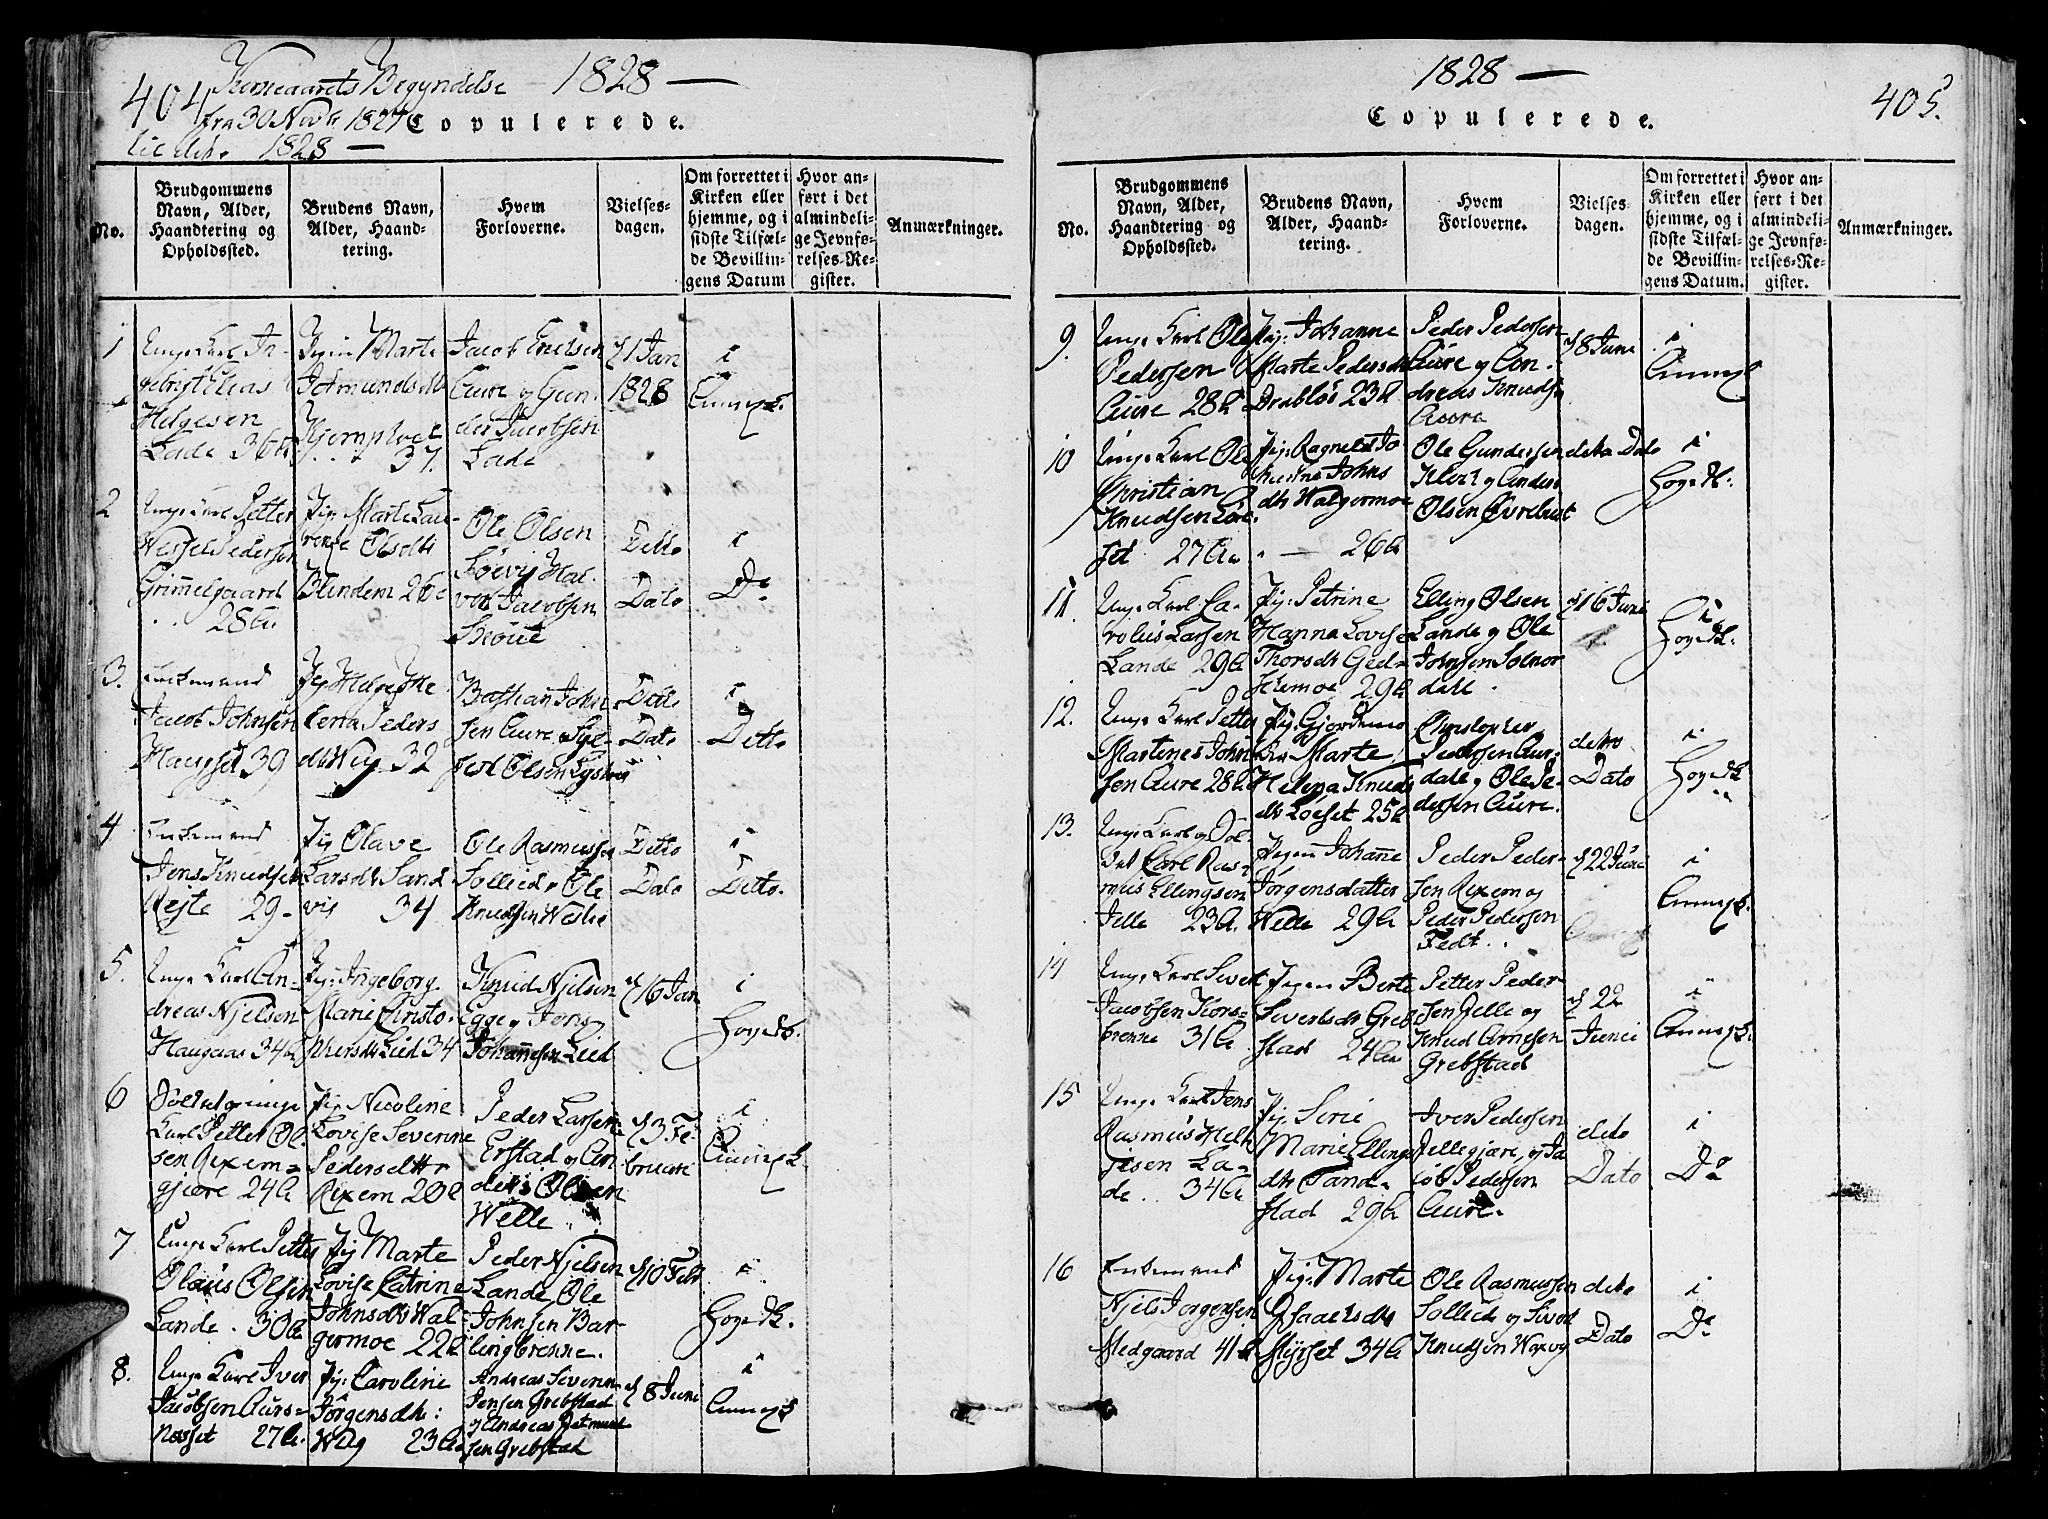 404
Kirkeaarets Begyndelse 1828 —
fra 30 Novbr 1827
til dito 1828 —
Copulerede.
No.
Brudgommens Navn, Alder, Haandtering og Opholdssted.
Brudens Navn, Alder, Haandtering.
Hvem Forloverne.
Vielsesdagen.
Om forrettet i Kirken eller hjemme, og i sidste Tilfælde Bevillingens Datum
Hvor anført i det almindelige Jevnførelses-Register.
Anmærkninger.
1
Unge Karl
Elias
Helgesen
Lade 36
Pigen Marte
37.
Jacob Knudsen
Aure og Gun-
der Jacobsen
Lade
1 Jan
1828
i
Annex k.
2
Unge Karl Petter
Wessel Pedersen
Grimelgaard
28 Aar
Pig Marte Lau-
rense Olsdtr
Blindem 26
Ole Olsen
Jacobsen
Ditto
Dato
i
Do
3.
Enkemand
Jacob Johnsen
Haugset 39
Pig
Peders
dtr Wiig 32
Bastian John
sen Aure
Olsen
Ditto
Dato
i
Ditto
4
Enkemand
Jens Knudsen
Rejte 29 -
Pig Olave
Larsdtr Sand
vig 34
Ole Rasmussen
Sollied og Ole
Knudsen
Ditto
Dato
i
Ditto.
5.
Unge Karl An-
dreas Njelsen
Haugaas 34
Pig: Ingeborg
Marie Christo-
phersdtr Lied 34
Knud Njelsen
Egge og Jons
Johannesen Lied
16 Jan
i
Hoged k.
6
Soldat og unge
Karl Petter Ol-
sen Rixem-
gjære 24
Pig Nicoline
Lovise Severine
Pedersdttr
Rixem 20
Peder Larsen
Erstad og An
ders Olsen
Welle
3 Fe-
bruari
i
Annex k.
7
Unge Karl Petter
Olaus Olsen
Lande. 30
Pig Marte
Lovise Catrine
Johnsdtr Wal-
germoe 22
Peder Njelsen
Lande Ole
Johnsen Bar-
lingbrenne.
10 Febr
i
Hoged k.
8.
Unge Karl Iver
Jacobsen Aurs-
nesset 27
Pig: Caroline
Jörgensdtr:
Wiig 23
Andreas Severin
Jensen Grebstad
og Andreas
sen Grebstad
8 Juni
i
Annex k
1828 —
405.
Copulerede.
No.
Brudgommens Navn, Alder, Haandtering og Opholdssted.
Brudens Navn, Alder, Haandtering.
Hvem Forloverne.
Vielsesdagen.
Om forrettet i Kirken eller hjemme, og i sidste Tilfælde Bevillingens Datum.
Hvor anført i det almindelige Jevnførelses-Register.
Anmærkninger.
9.
Unge Karl Ole
Pedersen
Aure 28
Pig: Johanne
Marte Pedersdtr
Drabløs 23
Peder Pedersen
Aure og An-
dreas Knudsen
Aure
8 Juni
i
Annex k
10
Unge Karl Ole
Christian
Knudsen Løe
set 27 Aar
Pig: Ragnild Jo
hanna Johns
dtr Walgermoe
" — 26
Ole Gundersen
og Anders
Olsen Øvrebust
ditto Dato
i
Hoged k.
11.
Unge Karl Ca-
rolus Larsen
Lande 29
Pig: Petrine
Hanna Lovise
Thorsdtr Ged-
skemoe 29
Elling Olsen
Lande og Ole
Johnsen Solnor
dall.
16 Juni
i
Hoged k.
12.
Unge Karl Petter
Martines John
sen Aure 28
Pig: Gjordemo
der Marte
Helena Knuds
dtr Løeset 25
Christopher
Pedersen Aur-
dall og Ole Pe-
dersen Aure.
ditto
Dato
i
Hoged k
13.
Unge Karl og Sol-
dat Carl Ras-
mus Ellingsen
Jelle 23
Pigen Johanne
Jørgensdatter
Welle 29
Peder Peder-
sen Rixem og
Peder Pedersen
Fedt.
22 Juni
i
Annex k.
14
Unge Karl Sivert
Jacobsen Kors-
brenne 31
Pigen Berte
Sivertsdtr Greb
stad 24
Petter Peder-
sen Jelle og
Knud Arnesen
Grebstad
22
Junii
i
Annex k.
15
Unge Karl Jens
Rasmus
La-
de. 34
Pig: Serie
Marie Ellings
dtr Tand-
stad 29
Iver Pedersen
Jellegjære, og Ja
cob Pedersen
Aure.
ditto
Dato
i
Do
16
Enkemand
Njels Jørgensen
Medgaard 41
Pig: Marte
Isaacsdtr
Myrset 34
Ole Rasmussen
Sollied og Sivert
Knudsen
ditto
Dato
i
Do